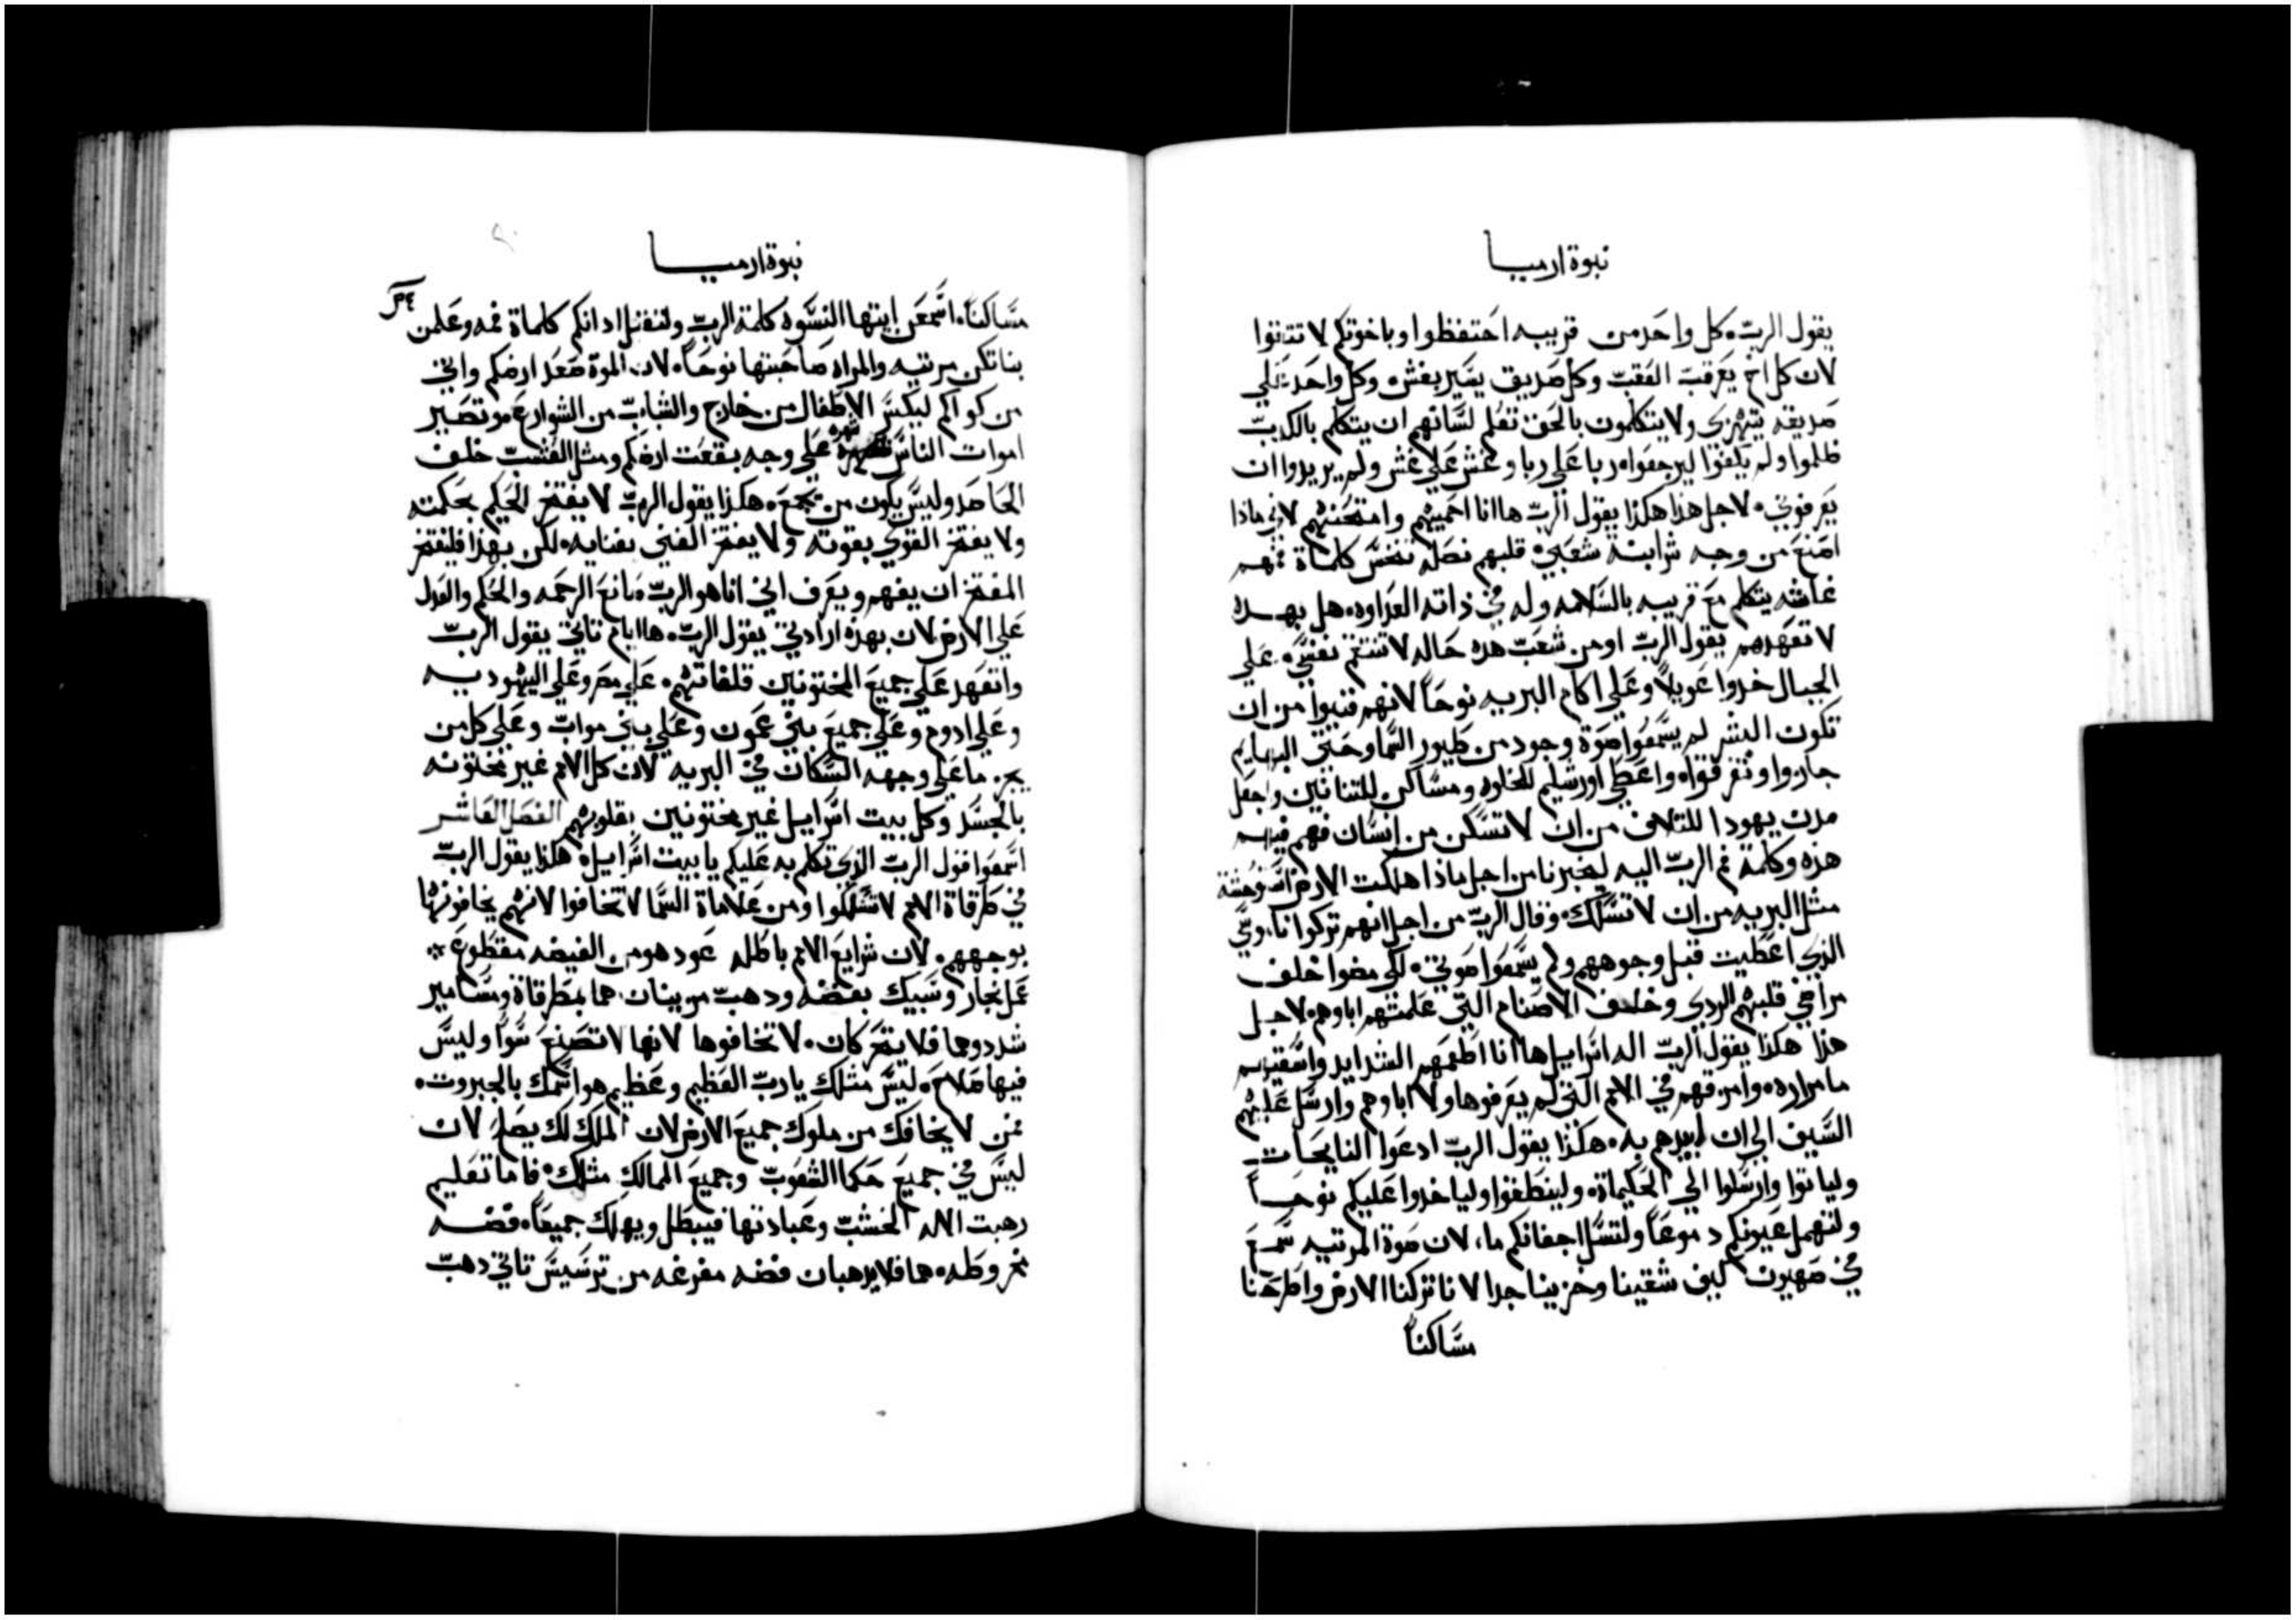 نبوة ارميا
يقول الرب. كل واحد من قريبه احتفظوا وباخوتكم لا تتقوا
لان كل اخ يعرقب العقب وكل صديق يسير بغش. وكل واحد علي
صديقه يتهزي ولا يتكلمون بالحق تعلم لسانهم ان يتكلم بالكدب
ظلموا ولم يكفوا ليرجعوا. ربا علي ربا وغش علي غش ولم يريدوا ان
يعرفوني. لاجل هذا هكذا يقول الرب ها انا احميهم وامتحنهم لاني ماذا
اصنع من وجه شرا بنة شعبي. قلبهم نصله تنخس كلماة فمهم
غاشه يتكلم مع قريبه بالسلامه وله في ذاته العداوه. هل بهده
لا تعهدهم يقول الرب او من شعب هده حاله لا تنتقم نفسي. علي
الجبال خدوا عويلا وعلي اكام البريه نوحا لانهم فنيوا من ان
تكون البشر لم يسمعوا صوة وجود من طيور السما وحتي البهايم
حاروا وتفرقوا. واعطي اورشليم للخلوه ومساكن للتنانين واجعل
مدن يهودا للتلاف من ان لا تسكن من انسان فهم فيهم
هذه وكلمة فم الرب اليه ليخبرنا من اجل ماذا هلكت الارض استوحشة
مثل البريه من ان لا تسلك. وقال الرب من اجل انهم تركوا ناموسي
الذي اعطيت قبل وجوههم ولم يسمعوا صوتي. لكن مضوا خلف
مراضي قلبهم الردي وخلف الاصنام التي علمتهم اباوهم. لاجل
هذا هكذا يقول الرب اله اسراييل ها انا اطعمهم الشدايد واسقيهم
ما مراره. وامرقهم في الامم التي لم يعرفوها ولا اباوهم وارسل عليهم
السيف الي ان ابيدهم به. هكذا يقول الرب ادعوا النايحات
ولياتوا وارسلوا الي الحكيماة. ولينطقوا ولياخدوا عليكم نوحا
ولتهمل عيونكم دموعا ولتسل اجفانكم ما، لان صوة المرتيه سمع
في صهيون كيف شقينا وخزينا جدا لاننا تركنا الارض واطرحنا
مساكننا
نبوة ارميا
٣٤
مساكننا. اسمعن ايتها النسوه كلمة الرب ولتقبل ادانكم كلماة فمه وعلمن
بناتكن مرتيه والمراه صاحبتها نوحا. لان الموة صعد ارضكم والي
من كواكم ليكسر الاطفال من خارج والشباب من الشوارع. وتصير
اموات الناس علي وجه بقعت ارضكم ومثل العشب خلف
الحاصد وليس يكون من يجمع. هكذا يقول الرب لا يفتخر الحكيم بحكمته
ولا يفتخر القوي بقوته ولا يفتخر الغني بغنايه. لكن بهذا فليفتخر
المفتخر ان يفهم ويعرف اني انا هو الرب صانع الرحمه والحكم والعدل
علي الارض لان بهذه ارادتي يقول الرب. ها ايام تاتي يقول الرب
واتعهد علي جميع المختونين قلفاتهم. علي مصر وعلي اليهوديه
وعلي ادوم وعلي جميع بني عمون وعلي بني مواب وعلي كل من
يجز ما علي وجهه السكان في البريه لان كل الامم غير مختونه
بالجسد وكل بيت اسراييل غير مختونين بقلوبهم الفصل العاشر
اسمعوا قول الرب الذي تكلم به عليكم يا بيت اسراييل. هكذا يقول الرب
في طرقاة الامم لا تسلكوا ومن علاماة السما لا تخافوا لانهم يخافونها
بوجههم. لان شرايع الامم باطله عود هو من الغيضه مقطوع.
عمل نجار وسبيك بفضه ودهب مزينان هما بمطرقاة ومسامير
شددوهما فلا يتحركان. لا تخافوها لانها لا تصنع سوا وليس
فيها صلاح. ليس مثلك يا رب العظيم وعظيم هو اسمك بالجبروت.
فمن لا يخافك من ملوك جميع الارض لان الملك لك يصلح لان
ليس في جميع حكما الشعوب وجميع الممالك مثلك. فاما تعليم
رهبت الاله الخشب وعبادتها فيبطل ويهلك جميعا. فضه
مخروطه. هما فلا يرهبان فضه مفرغه من ترسيس تاتي دهب